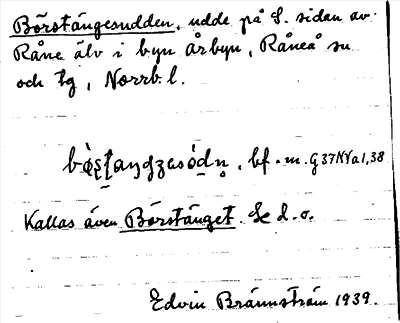 Börstängesudden, udde på S. sidan av
Råne älv i byn Årbyn, Råneå sn
och tg, Norrb. l.
bf. m. G37NVa1,38
Kallas även Börstänget. Se d. o.
Edvin Brännström 1939.